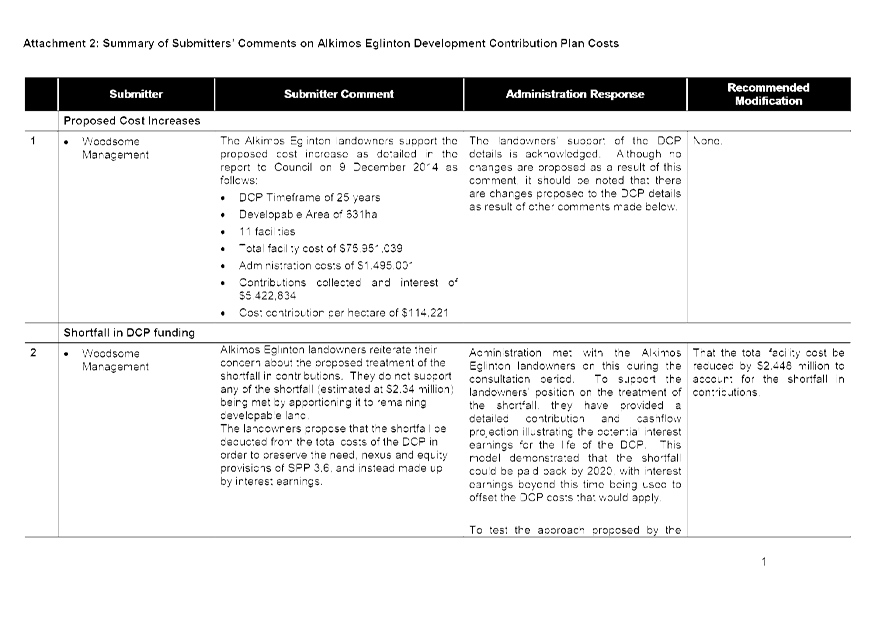 Attachment 2: Summary of Submitters' Comments on Alkimos Eglinton Development Contribution Plan Costs
Submitter
Submitter Comment
Administration Response
Recommended
Modification
Proposed Cost Increases
1
• Woodsome
Management
The Alkimos Eglinton landowners support the
proposed cost increase as detailed in the
report to Council on 9 December 2014 as
follows:
• DCP Timeframe of 25 years
• Developable Area of 631ha
• 11 facilities
• Total facility cost of $75,951,039
• Administration costs of $1,495,001
• Contributions collected and interest of
$5,422,834
• Cost contribution per hectare of $114,221
The landowners' support of the DCP
details is acknowledged. Although no
changes are proposed as a result of this
comment, it should be noted that there
are changes proposed to the DCP details
as result of other comments made below.
None.
Shortfall in DCP funding
2
• Woodsome
Management
Alkimos Eglinton landowners reiterate their
concern about the proposed treatment of the
shortfall in contributions. They do not support
any of the shortfall (estimated at $2.34 million)
being met by apportioning it to remaining
developable land.
The landowners propose that the shortfall be
deducted from the total costs of the DCP in
order to preserve the need, nexus and equity
provisions of SPP 3.6, and instead made up
by interest earnings.
Administration met with the Alkimos
Eglinton landowners on this during the
consultation period. To support the
landowners' position on the treatment of
the shortfall, they have provided a
detailed contribution and cashflow
projection illustrating the potential interest
earnings for the life of the DCP. This
model demonstrated that the shortfall
could be paid back by 2020, with interest
earnings beyond this time being used to
offset the DCP costs that would apply.
To test the approach proposed by the
That the total facility cost be
reduced by $2.448 million to
account for the shortfall in
contributions.
1